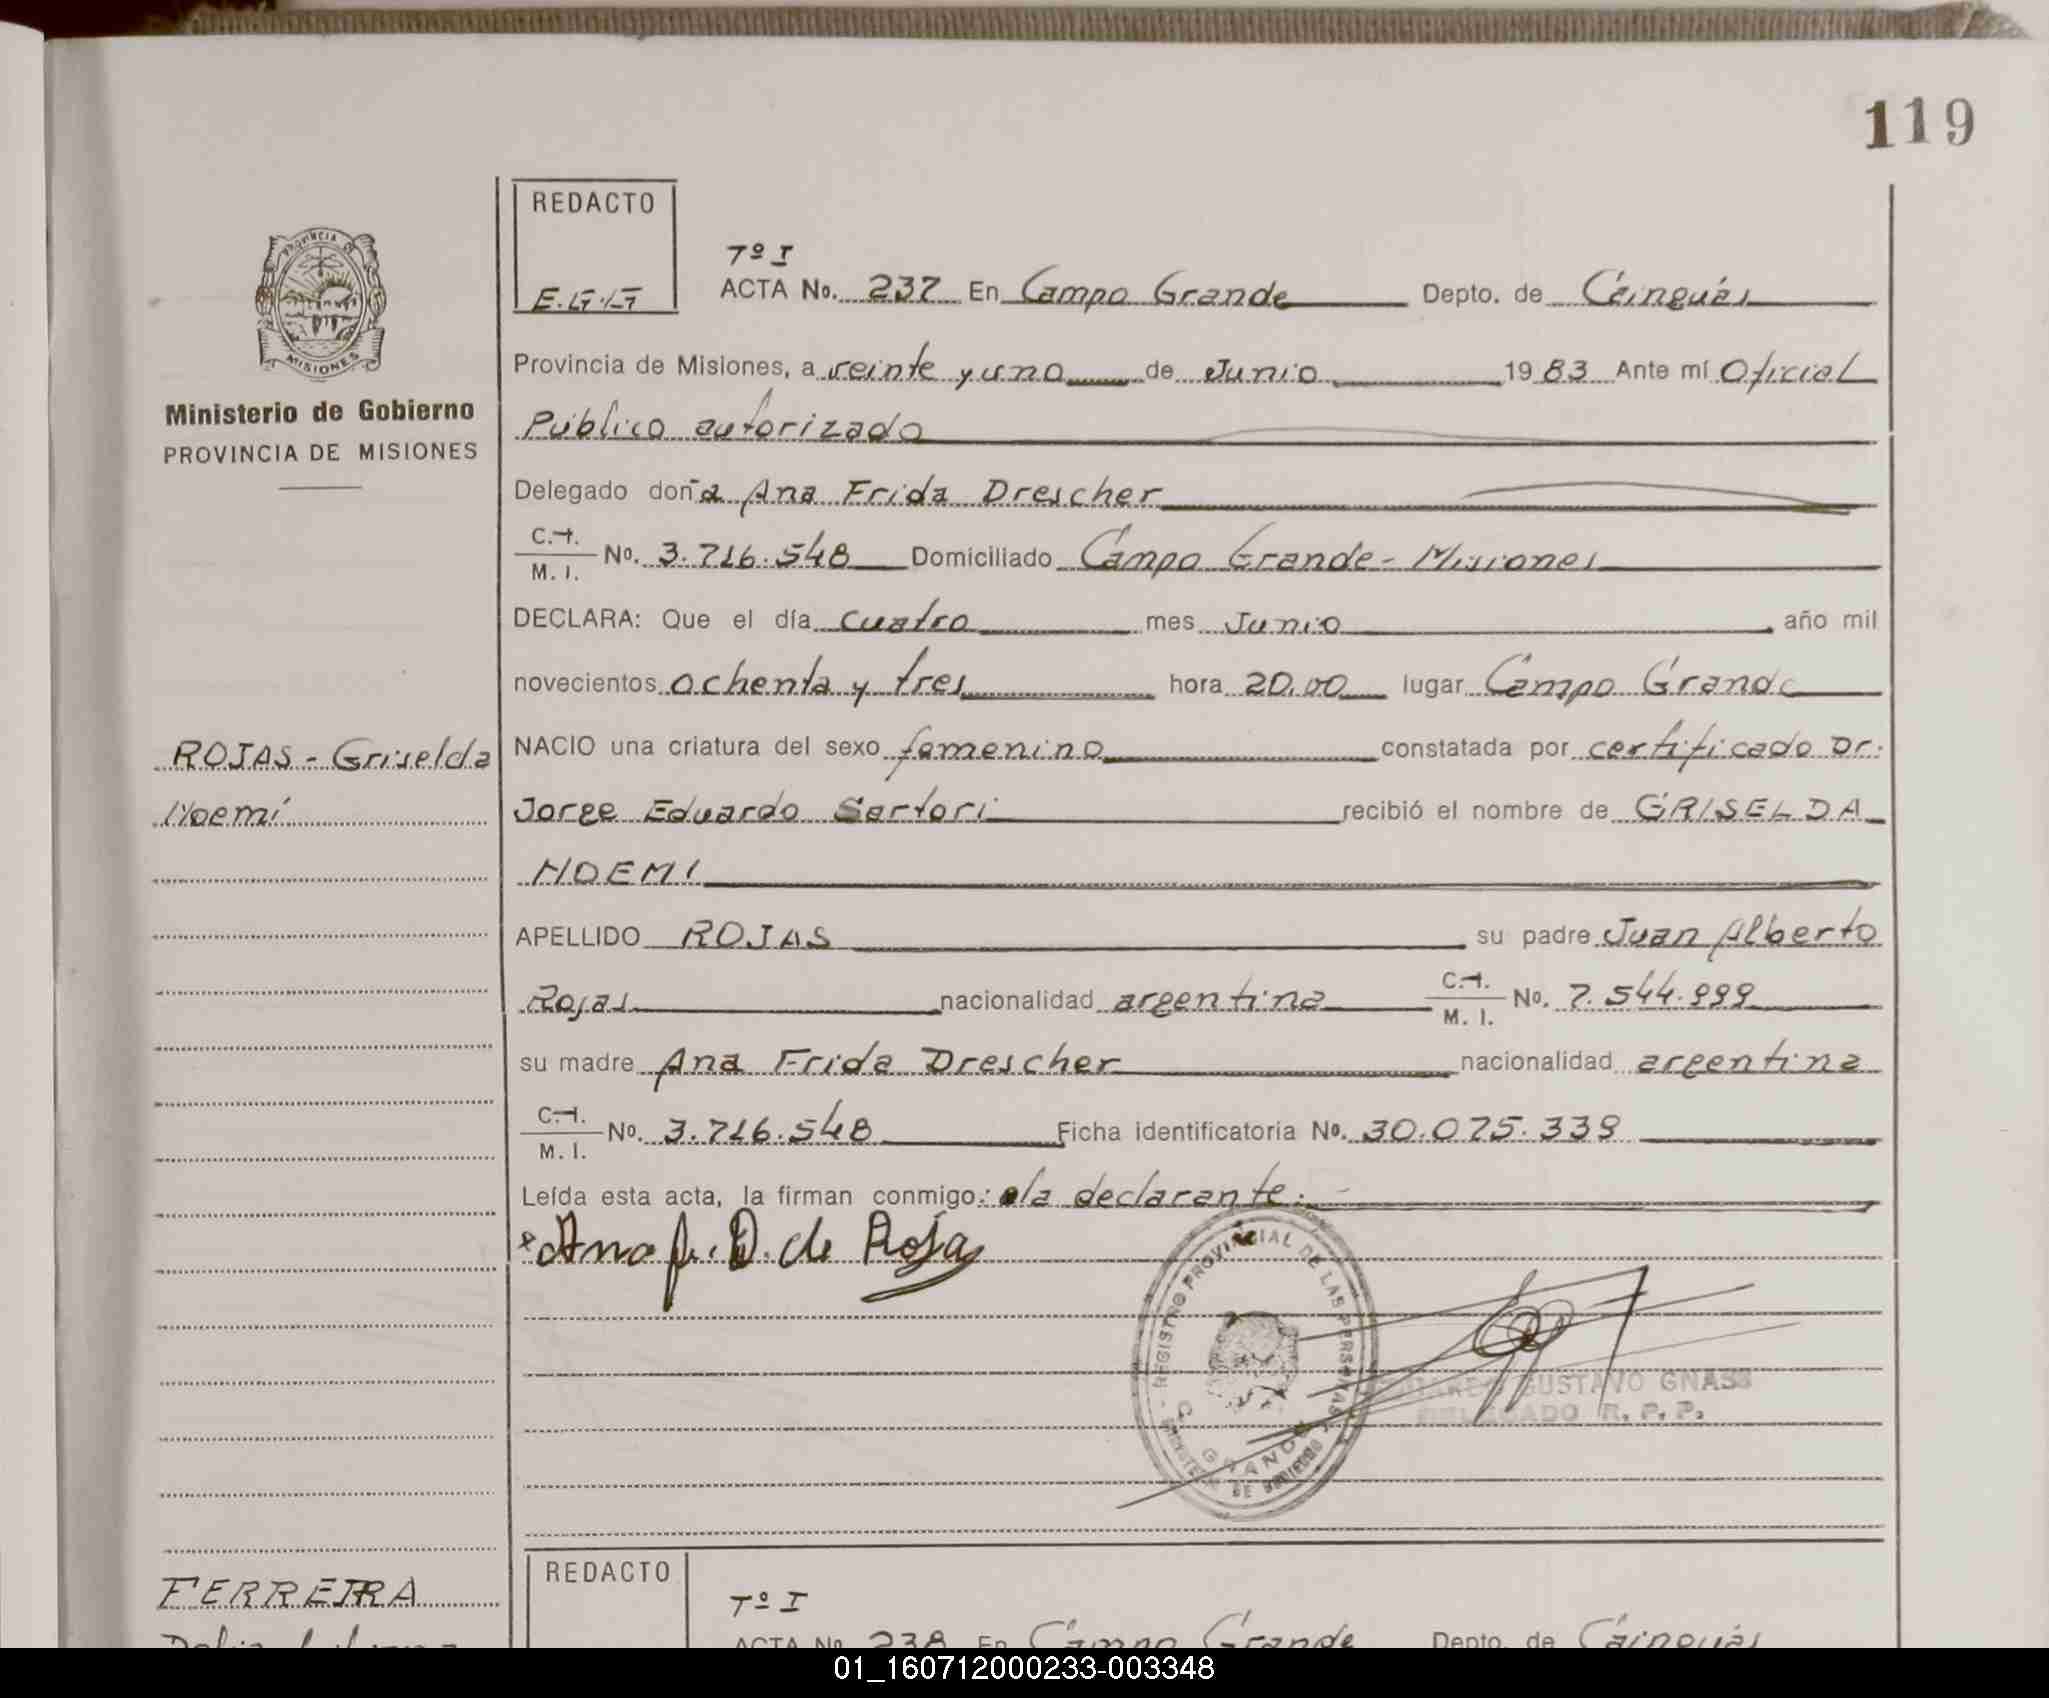 119
REDACTO
E.G.G
Tº I
ACTA No. 237 En Campo Grande Depto. de Cainguás
PROVINCIA DE
MISIONES
Provincia de Misiones, a veinte y uno de Junio 1983 Ante mí Oficial
Ministerio de Gobierno
PROVINCIA DE MISIONES
Público autorizado
Delegado doña Ana Frida Drescher
C.I.
M. I. No. 3.716.548 Domiciliado Campo Grande - Misiones
DECLARA: Que el día cuatro mes Junio año mil
novecientos ochenta y tres hora 20,00 lugar Campo Grande
ROJAS - Griselda
Noemí
NACIO una criatura del sexo femenino constatada por certificado Dr.
Jorge Eduardo Sartori recibió el nombre de GRISELDA
NOEMI
APELLIDO ROJAS su padre Juan Alberto
Rojas nacionalidad argentina C.I.
M. I. No. 7.544.999
su madre Ana Frida Drescher nacionalidad argentina
C.I.
M. I. No. 3.716.548 Ficha identificatoria No. 30.075.339
Leída esta acta, la firman conmigo: la declarante.
Ana F. D. de Rojas
REGISTRO PROVINCIAL DE LAS PERSONAS
GRANDE
DE GOBIERNO
GUSTAVO GNASS
DELEGADO R. P. P.
REDACTO
FERREIRA
Tº I
ACTA No. 238 En Campo Grande Depto. de Cainguás
01_160712000233-003348